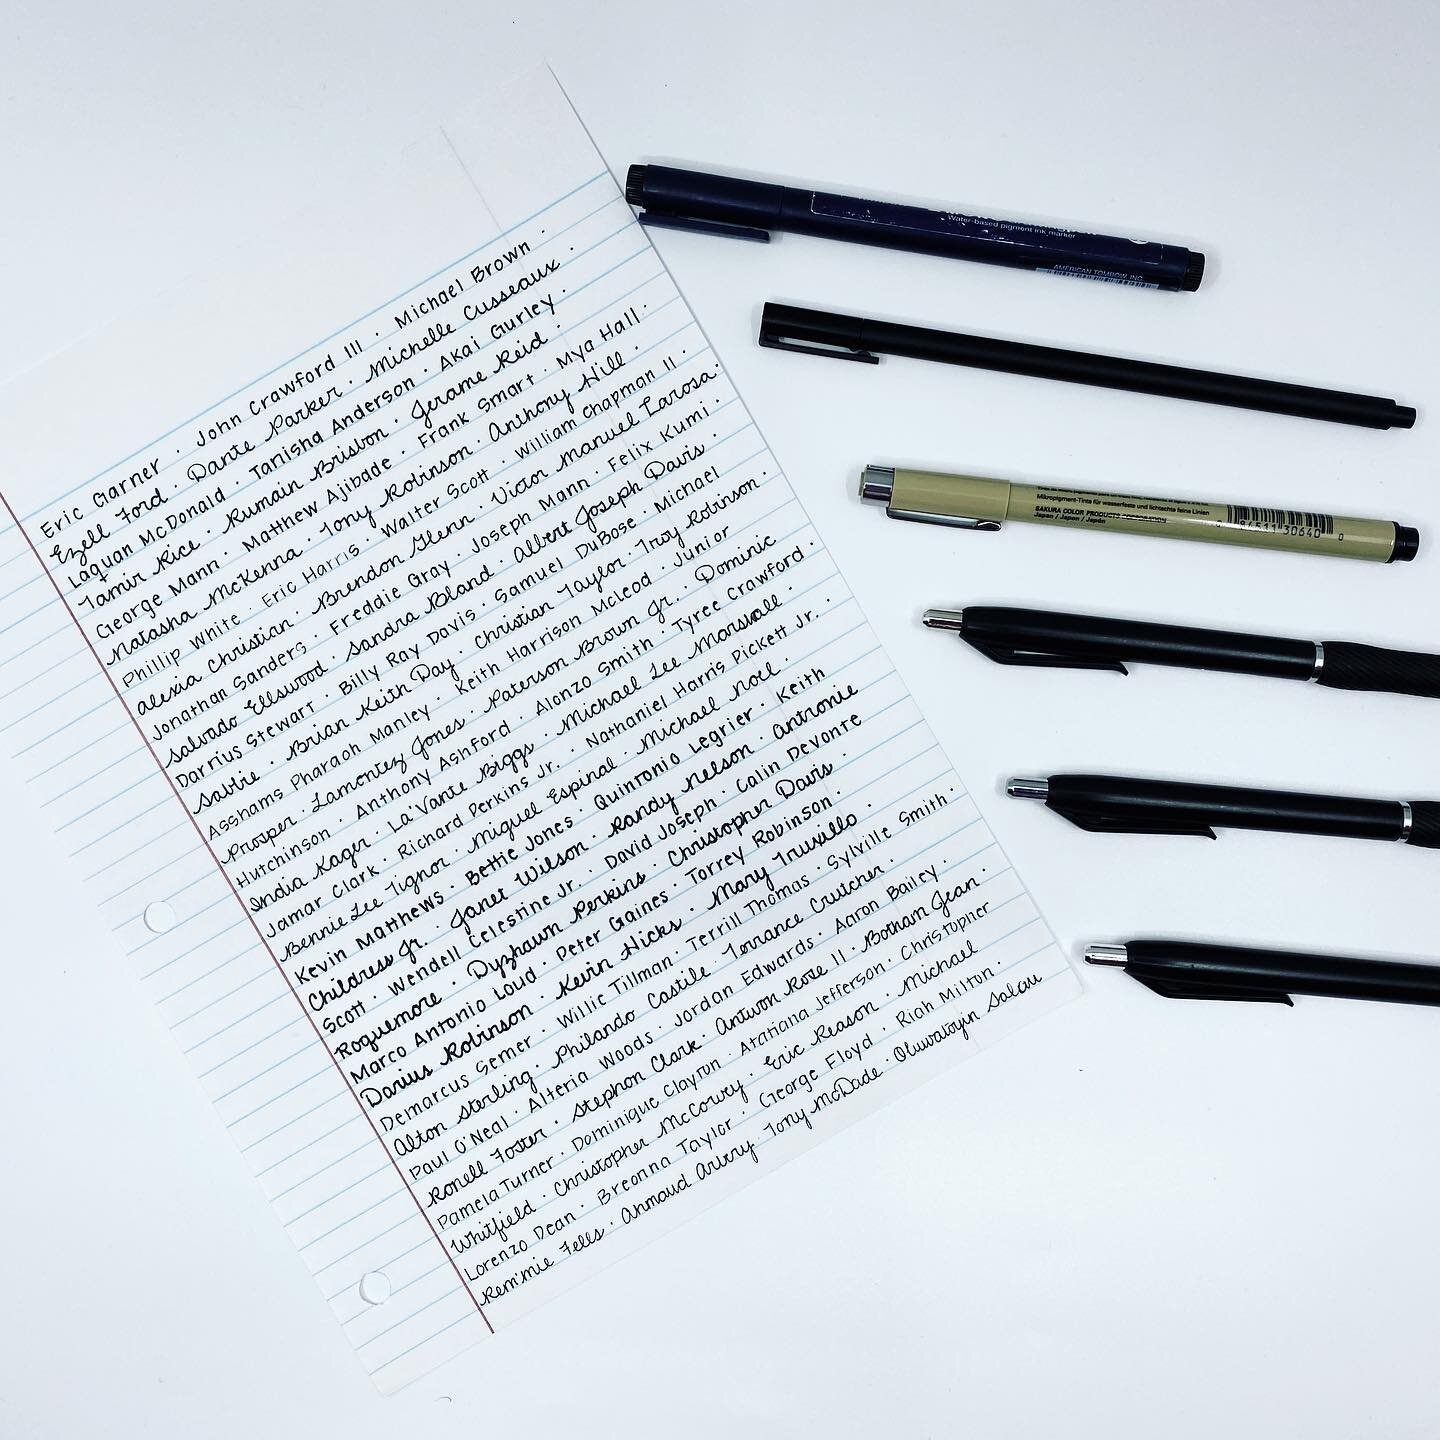 Eric Garner · John Crawford III · Michael Brown ·
Ezell Ford · Dante Parker · Michelle Cusseaux ·
Laquan McDonald · Tanisha Anderson · Akai Gurley ·
Tamir Rice · Rumain Brisbon · Jerame Reid ·
George Mann · Matthew Ajibade · Frank Smart · Mya Hall ·
Natasha McKenna · Tony Robinson · Anthony Hill ·
Phillip White · Eric Harris · Walter Scott · William Chapman II ·
Alexia Christian · Brendon Glenn · Victor Manuel Larosa ·
Jonathan Sanders · Freddie Gray · Joseph Mann · Felix Kumi ·
Salvado Ellswood · Sandra Bland · Albert Joseph Davis ·
Darrius Stewart · Billy Ray Davis · Samuel DuBose · Michael
Sabbie · Brian Keith Day · Christian Taylor · Troy Robinson ·
Asshams Pharaoh Manley · Keith Harrison McLeod · Junior
Prosper · Lamontez Jones · Paterson Brown Jr. · Dominic
Hutchinson · Anthony Ashford · Alonzo Smith · Tyree Crawford ·
India Kager · La'Vante Biggs · Michael Lee Marshall ·
Jamar Clark · Richard Perkins Jr. · Nathaniel Harris Pickett Jr. ·
Bennie Lee Tignor · Miguel Espinal · Michael Noel ·
Kevin Matthews · Bettie Jones · Quintonio Legrier · Keith
Childress Jr. · Janet Wilson · Randy Nelson · Antronie
Scott · Wendell Celestine Jr. · David Joseph · Calin DeVonte
Roquemore · Dyzhawn Perkins · Christopher Davis ·
Marco Antonio Loud · Peter Gaines · Torrey Robinson ·
Darius Robinson · Kevin Hicks · Mary Truxillo ·
Demarcus Semer · Willie Tillman · Terrill Thomas · Sylville Smith ·
Alton Sterling · Philando Castile · Torrance Crutcher ·
Paul O'Neal · Alteria Woods · Jordan Edwards · Aaron Bailey ·
Ronell Foster · Stephon Clark · Antwon Rose II · Botham Jean ·
Pamela Turner · Dominique Clayton · Atatiana Jefferson · Christopher
Whitfield · Christopher McCorvey · Eric Reason · Michael
Lorenzo Dean · Breonna Taylor · George Floyd · Riah Milton ·
Rem'mie Fells · Ahmaud Arbery · Tony McDade · Oluwatoyin Salau
Water-based pigment ink marker
AMERICAN TOMBOW, INC.
Mikropigment-Tinte für wasserfeste und lichtechte feine Linien
SAKURA COLOR PRODUCTS CORPORATION
Japan / Japon / Japón
84511 30640 0